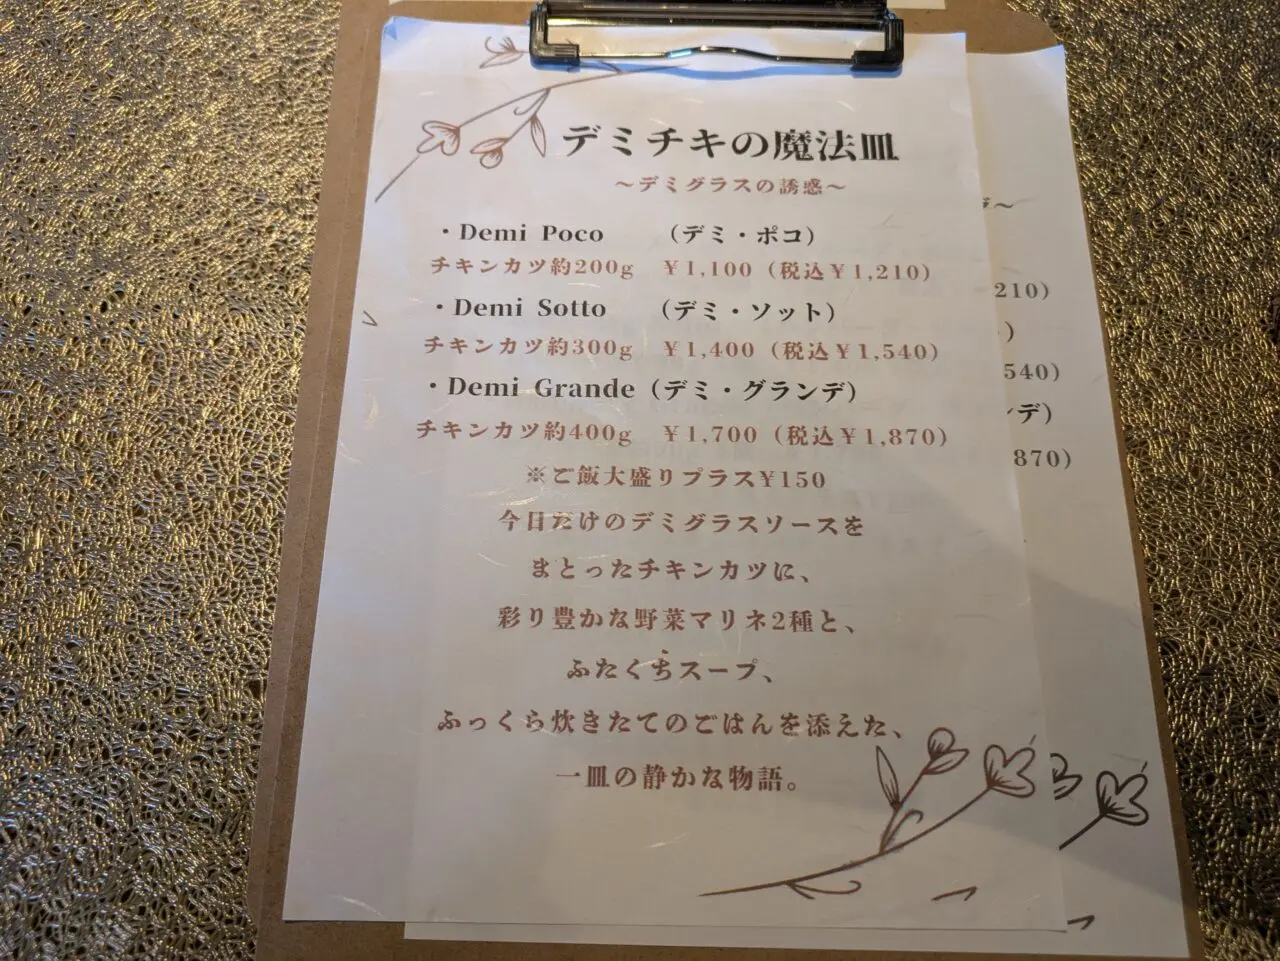 デミチキの魔法皿
～デミグラスの誘惑～
・Demi Poco （デミ・ポコ）
チキンカツ約200g ¥1,100（税込¥1,210）
・Demi Sotto （デミ・ソット）
チキンカツ約300g ¥1,400（税込¥1,540）
・Demi Grande（デミ・グランデ）
チキンカツ約400g ¥1,700（税込¥1,870）
※ご飯大盛りプラス¥150
今日だけのデミグラスソースを
まとったチキンカツに、
彩り豊かな野菜マリネ2種と、
ふたくちスープ、
ふっくら炊きたてのごはんを添えた、
一皿の静かな物語。
～
210）
）
540）
デ）
870）